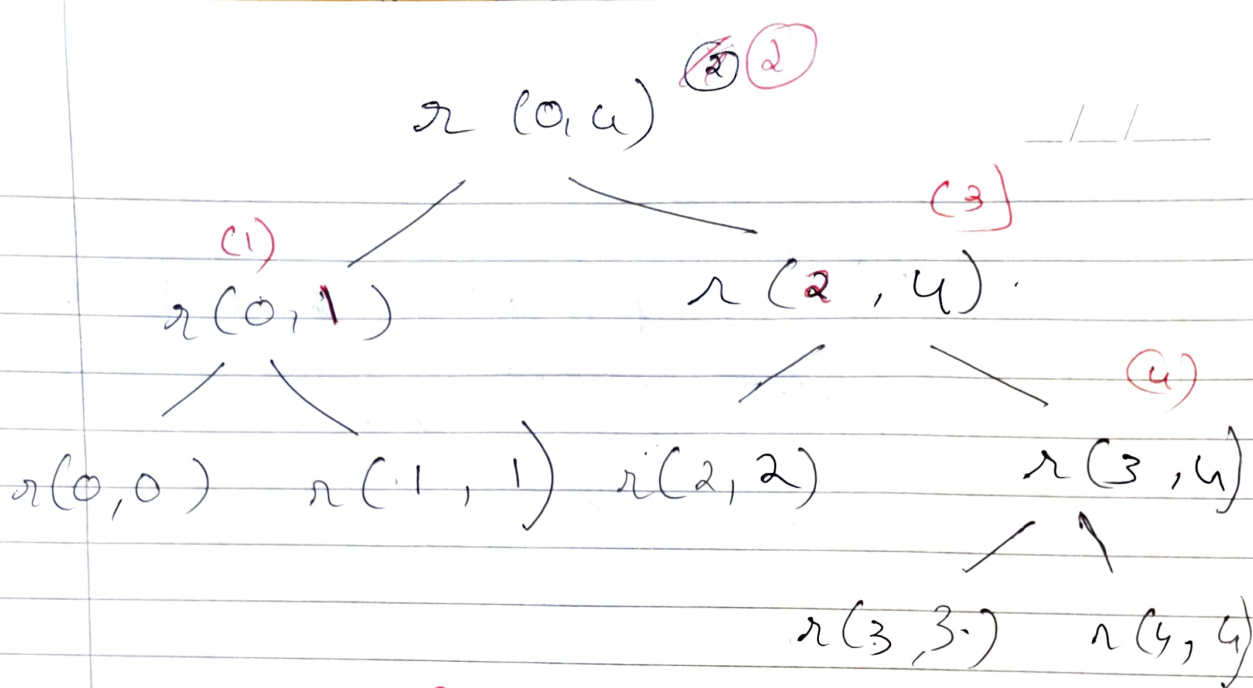 2 2
r (0, 4)
(3)
(1)
r (0, 1) r (2, 4)
(4)
r(0,0) r(1, 1) r(2, 2) r(3, 4)
r(3, 3) r(4, 4)